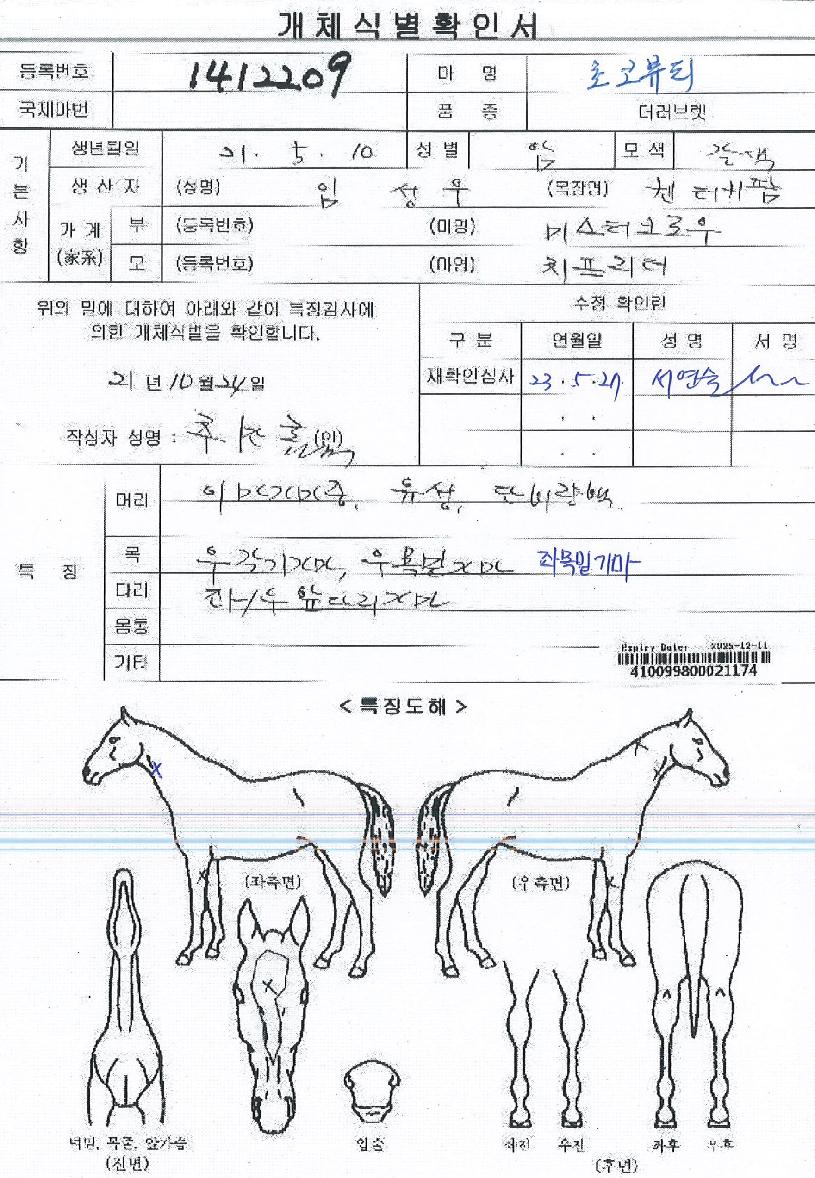 개체식별확인서
등록번호 1412209 마 명 초코뷰티
국제마번 품 종 더러브렛
기본사항
생년월일 21. 5. 10 성별 암 모색 갈색
생산자 (성명) 임 성 우 (목장명) 첸터치팜
가계 (家系) 부 (등록번호) (마명) 미스터크로우
모 (등록번호) (마명) 치프리더
위의 말에 대하여 아래와 같이 특징검사에
의한 개체식별을 확인합니다.
21 년 10 월 24 일
작성자 성명 : (인)
수정 확인란
구 분 연월일 성 명 서 명
재확인심사 23.5.27. 서연숙
. .
. .
특 징
머리 유성,
목 우측기자마, 좌목밑기마
다리 좌/우 앞다리자마
몸통
기타
Expiry Date: 2025-12-11
410099800021174
< 특징도해 >
(좌측면) (우측면)
너밑, 목줄, 앞가슴
(전면)
입술
좌전 우전 좌후 우후
(후면)